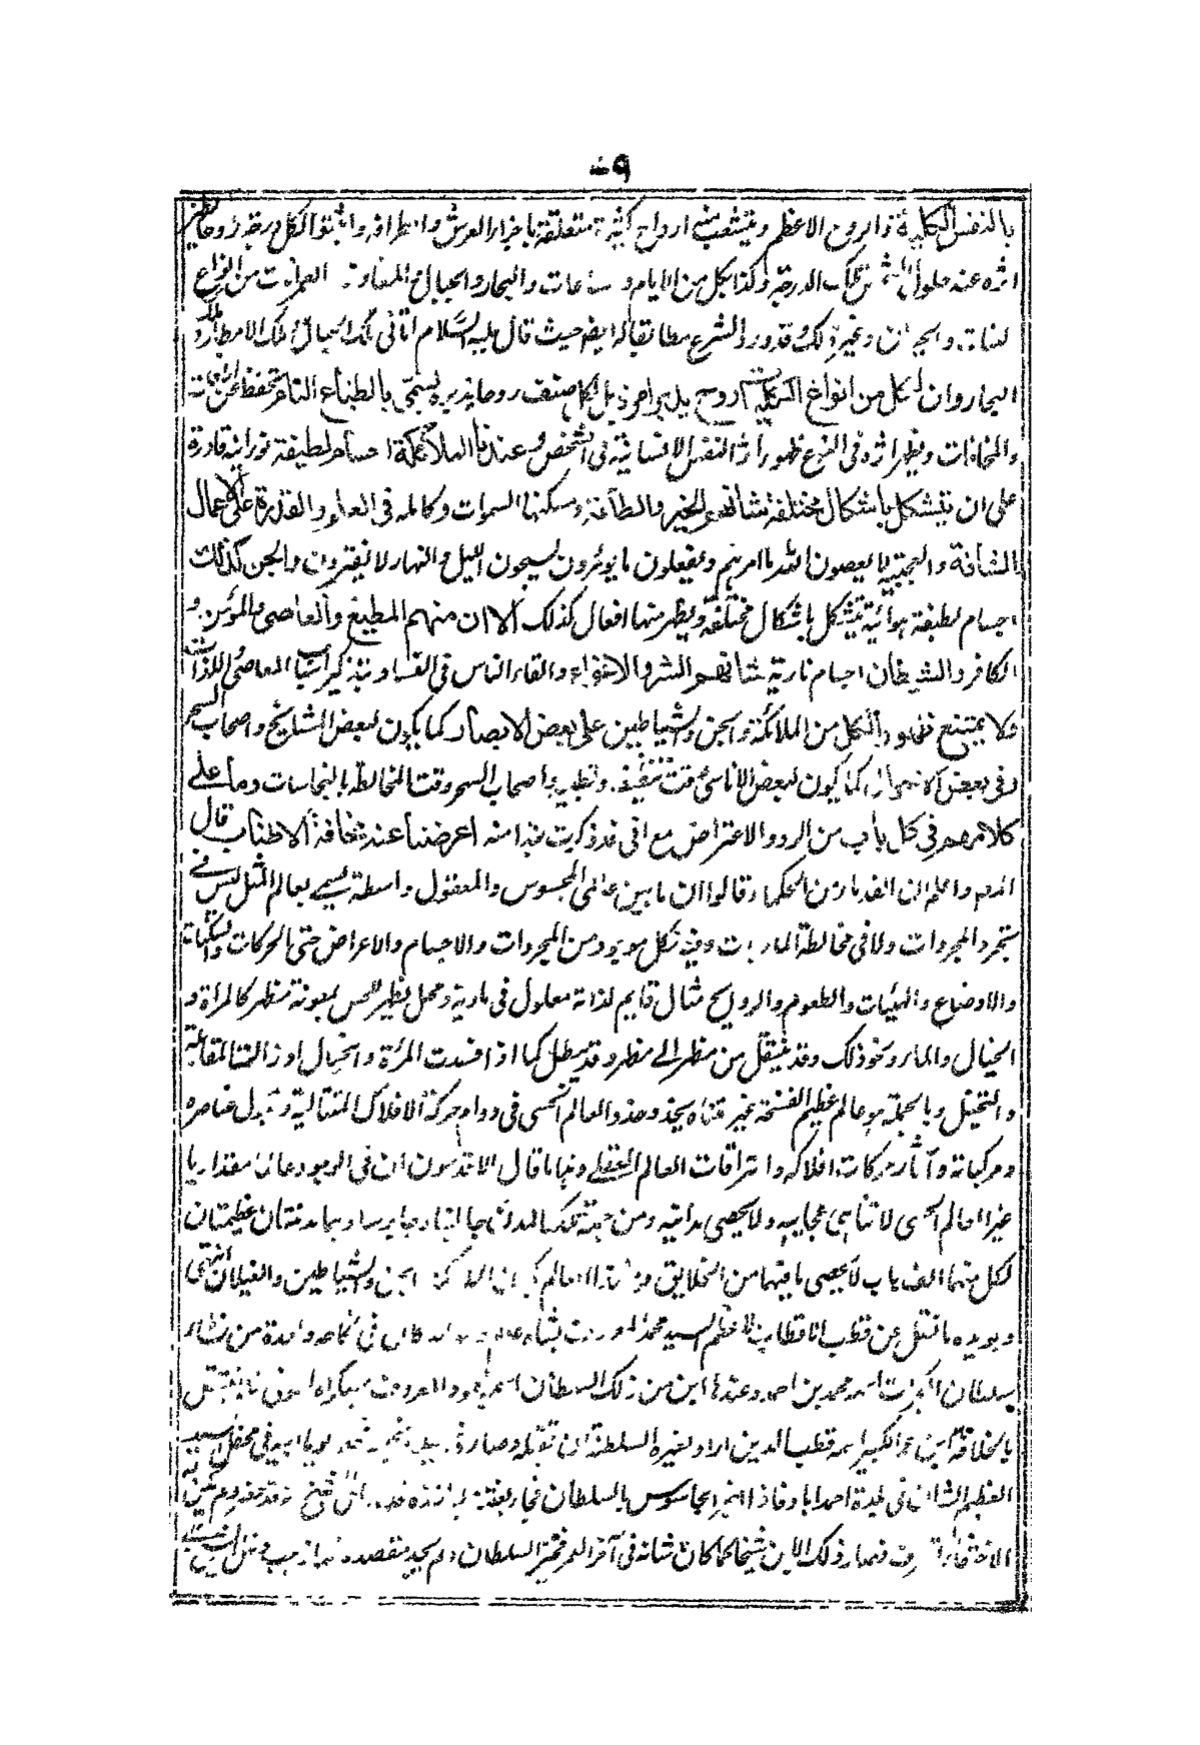 ٩
بالنفس الكلية والروح الاعظم ويتشعب منه ارواح كثيرة متعلقة باجزاء العرش واطرافه واثبتوا لكل درجة روحا يظهر
اثره عند حلول الشمس تلك الدرجة وكذا لكل من الايام والساعات والبحار والجبال والمفاوز العمران من انواع
النباتات والحيوانات وغير ذلك وقد ورد الشرع مطابقا لهم ايضا حيث قال عليه السلام اتاني ملك الجبال وملك الامطار وملك
البحار وان لكل من انواع الكائنات روح يدبر امره بل لكل صنف روحا يدبره يسمى بالطباع التام تحفظه عن الآفات
والمخافات ويظهر اثره في النوع ظهور اثر النفس الانسانية في الشخص وعندنا الملائكة اجسام لطيفة نورانية قادرة
على ان يتشكل باشكال مختلفة شانهم الخير والطاعة ومسكنها السموات وكاملة في العلم والقدرة على الاعمال
الشاقة والعجيبة لا يعصون الله ما امرهم ويفعلون ما يؤمرون يسبحون الليل والنهار لا يفترون والجن كذلك
اجسام لطيفة هوائية يتشكل باشكال مختلفة ويظهر منها افعال كذلك الا ان منهم المطيع والعاصي والمؤمن و
الكافر والشيطان اجسام نارية شانهم الشر والاغواء والقاء الناس في الفساد بتذكير اسباب المعاصي واللذات
ولا يمتنع ظهور الكل من الملائكة والجن والشياطين على بعض الابصار كما يكون لبعض المشايخ واصحاب السحر
وفي بعض الاحوال كما يكون لبعض الاناسي وقت تنظيفه وتطهيره واصحاب السحر وقت المخالطة بالنجاسات وما على
كلامهم في كل باب من الرد والاعتراض مع اني قد ذكرت نبذا منه اعرضنا عنه مخافة الاطناب قال
اند واعلم ان القدماء من الحكماء قالوا ان ما بين عالمي المحسوس والمعقول واسطة يسمى بعالم المثل ليس في
تجرد المجردات ولا في مخالطة الماديات وفيه لكل موجود من المجردات والاجسام والاعراض حتى الحركات والسكنات
والاوضاع والهيئات والطعوم والروايح مثال قايم لذاته معلول في مادية ومحل يظهر للحس بمعونة مظهر كالمراة و
الخيال والماء ونحو ذلك وقد ينتقل من مظهر الى مظهر وقد يبطل كما اذا فسدت المرئة والخيال او زالت المقابلة
والتخيل وبالجملة هو عالم عظيم الفسحة غير متناه يحذو حذو العالم الحسي في دوام حركة الافلاك المثالية وقبول عناصره
ومركباته وآثار حركات افلاكه واشراقات العالم العقلي وهذا ما قال الاقدمون ان في الوجود عالما مقداريا
غير العالم الحسي لا تتناهى عجايبه ولا يحصى مداينه ومن جملة تلك المدن جابلقا وجابرسا وهما مدينتان عظيمتان
لكل منهما الف باب لا يحصى ما فيهما من الخلايق ومن هذا العالم كون الملائكة والجن والشياطين والغيلان انتهى
ويؤيده ما نقل عن قطب الاقطاب الاعظم السيد محمد المعروف بشاه عالم انه كان في نكاحه واحدة من نظار
سلطان الكجرات اسمه محمد بن احمد وعندها ابن من ذلك السلطان اسمه محمود المعروف
بالخلافة ابن عم الكبير اسمه قطب الدين اراد لغيرة السلطنة ان يقتله وصار في محفل السيد
العظيم الشان في بلدة احمداباد فاذا اخبر الجاسوس بالسلطان فجاء بغتة
فصار ذلك الابن شيخا كما كان شانه في آخر العمر فتحير السلطان ولم يجد مقصده